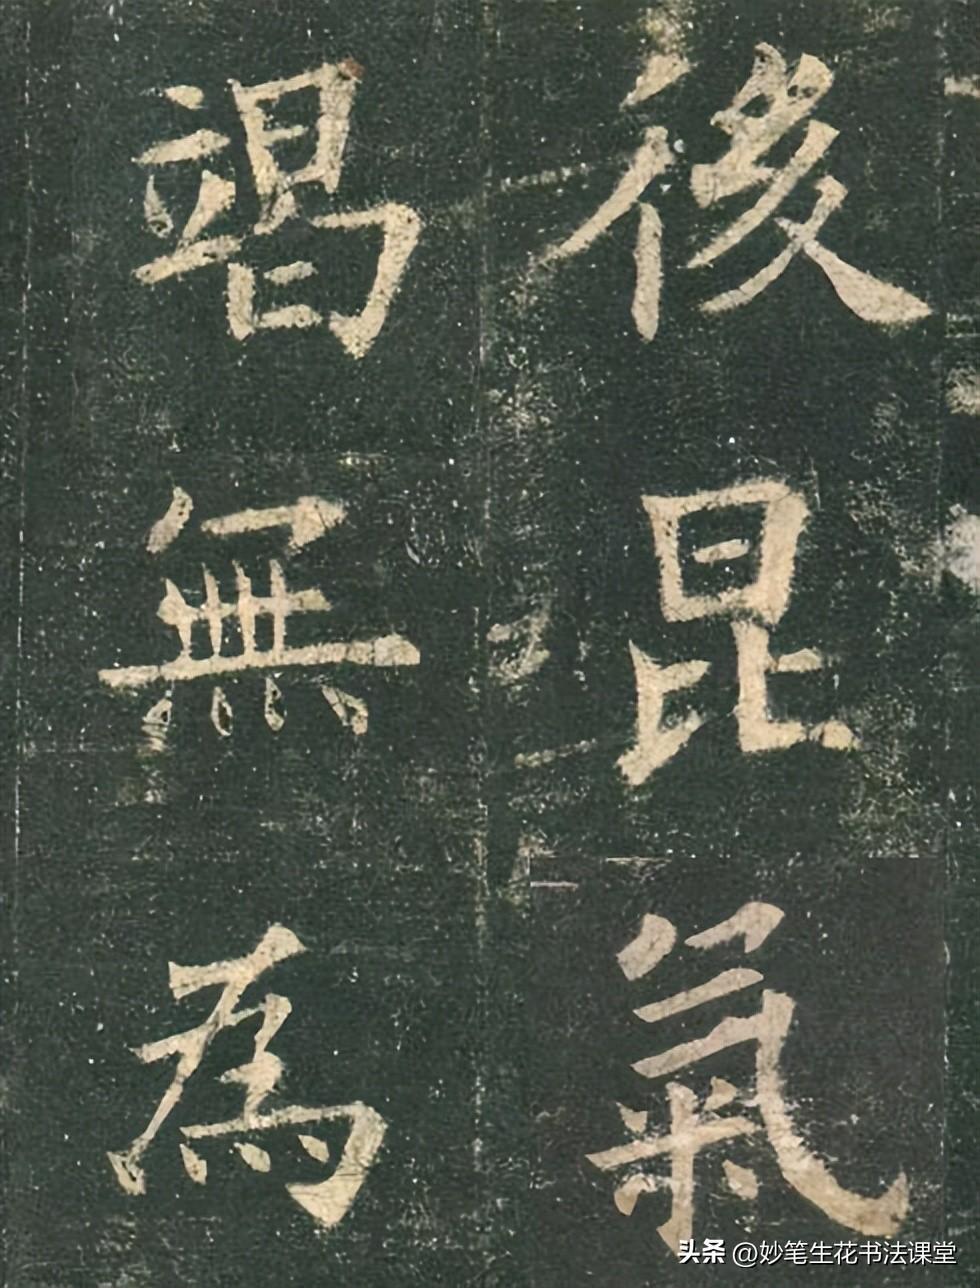 後昆氣
竭無為
头条 @妙笔生花书法课堂